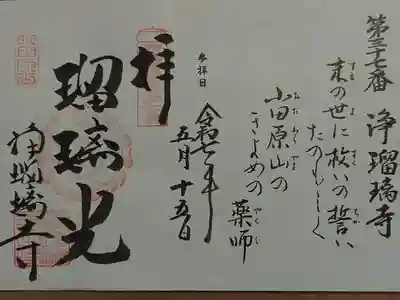 第三十七番 浄瑠璃寺
末の世に救いの誓い
たのもしく
小田原山の
きよめの薬師
参拝日
令和七年
五月十五日
拝
瑠璃光
浄瑠璃寺